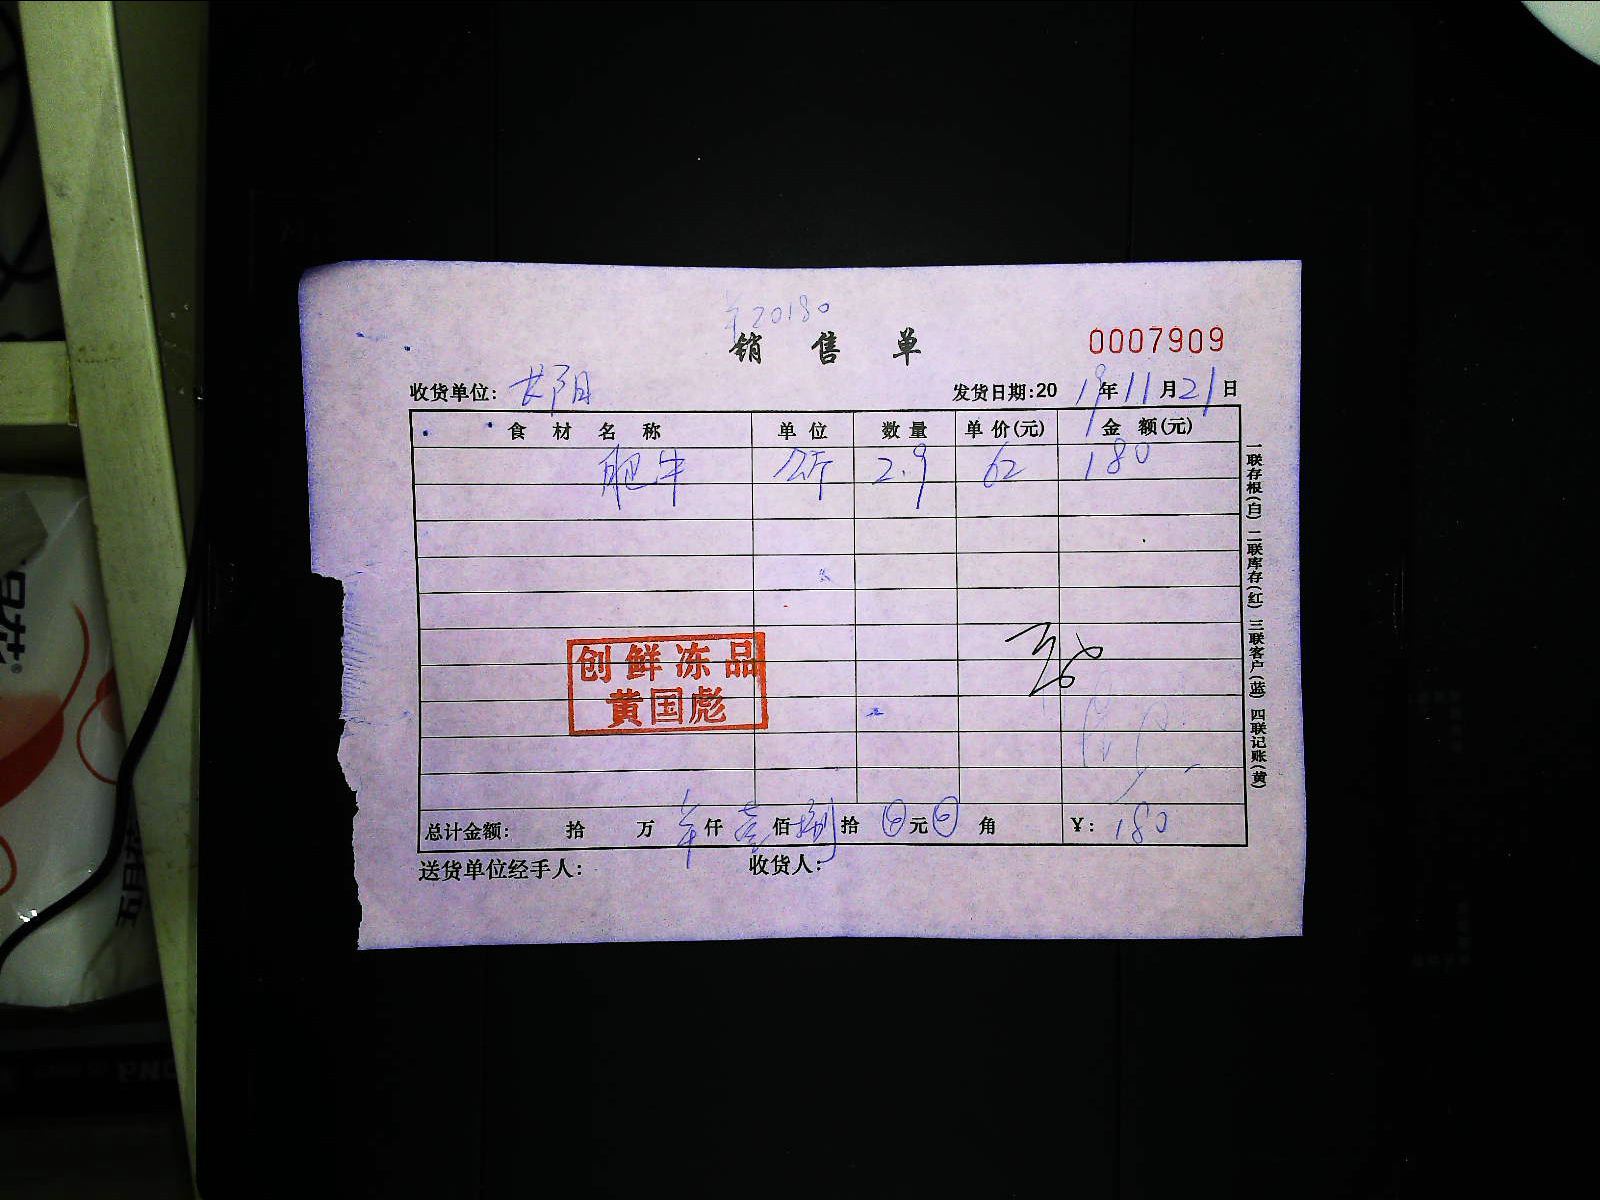 20180
销售单 0007909
收货单位: 长阳 发货日期:2019年11月21日
食材名称 单位 数量 单价(元) 金额(元)
肥牛 公斤 2.9 62 180
创鲜冻品
黄国彪
总计金额: 拾 万 仟 壹佰 捌拾 元 角 ¥: 180
送货单位经手人: 收货人:
一联存根(白) 二联库存(红) 三联客户(蓝) 四联记账(黄)